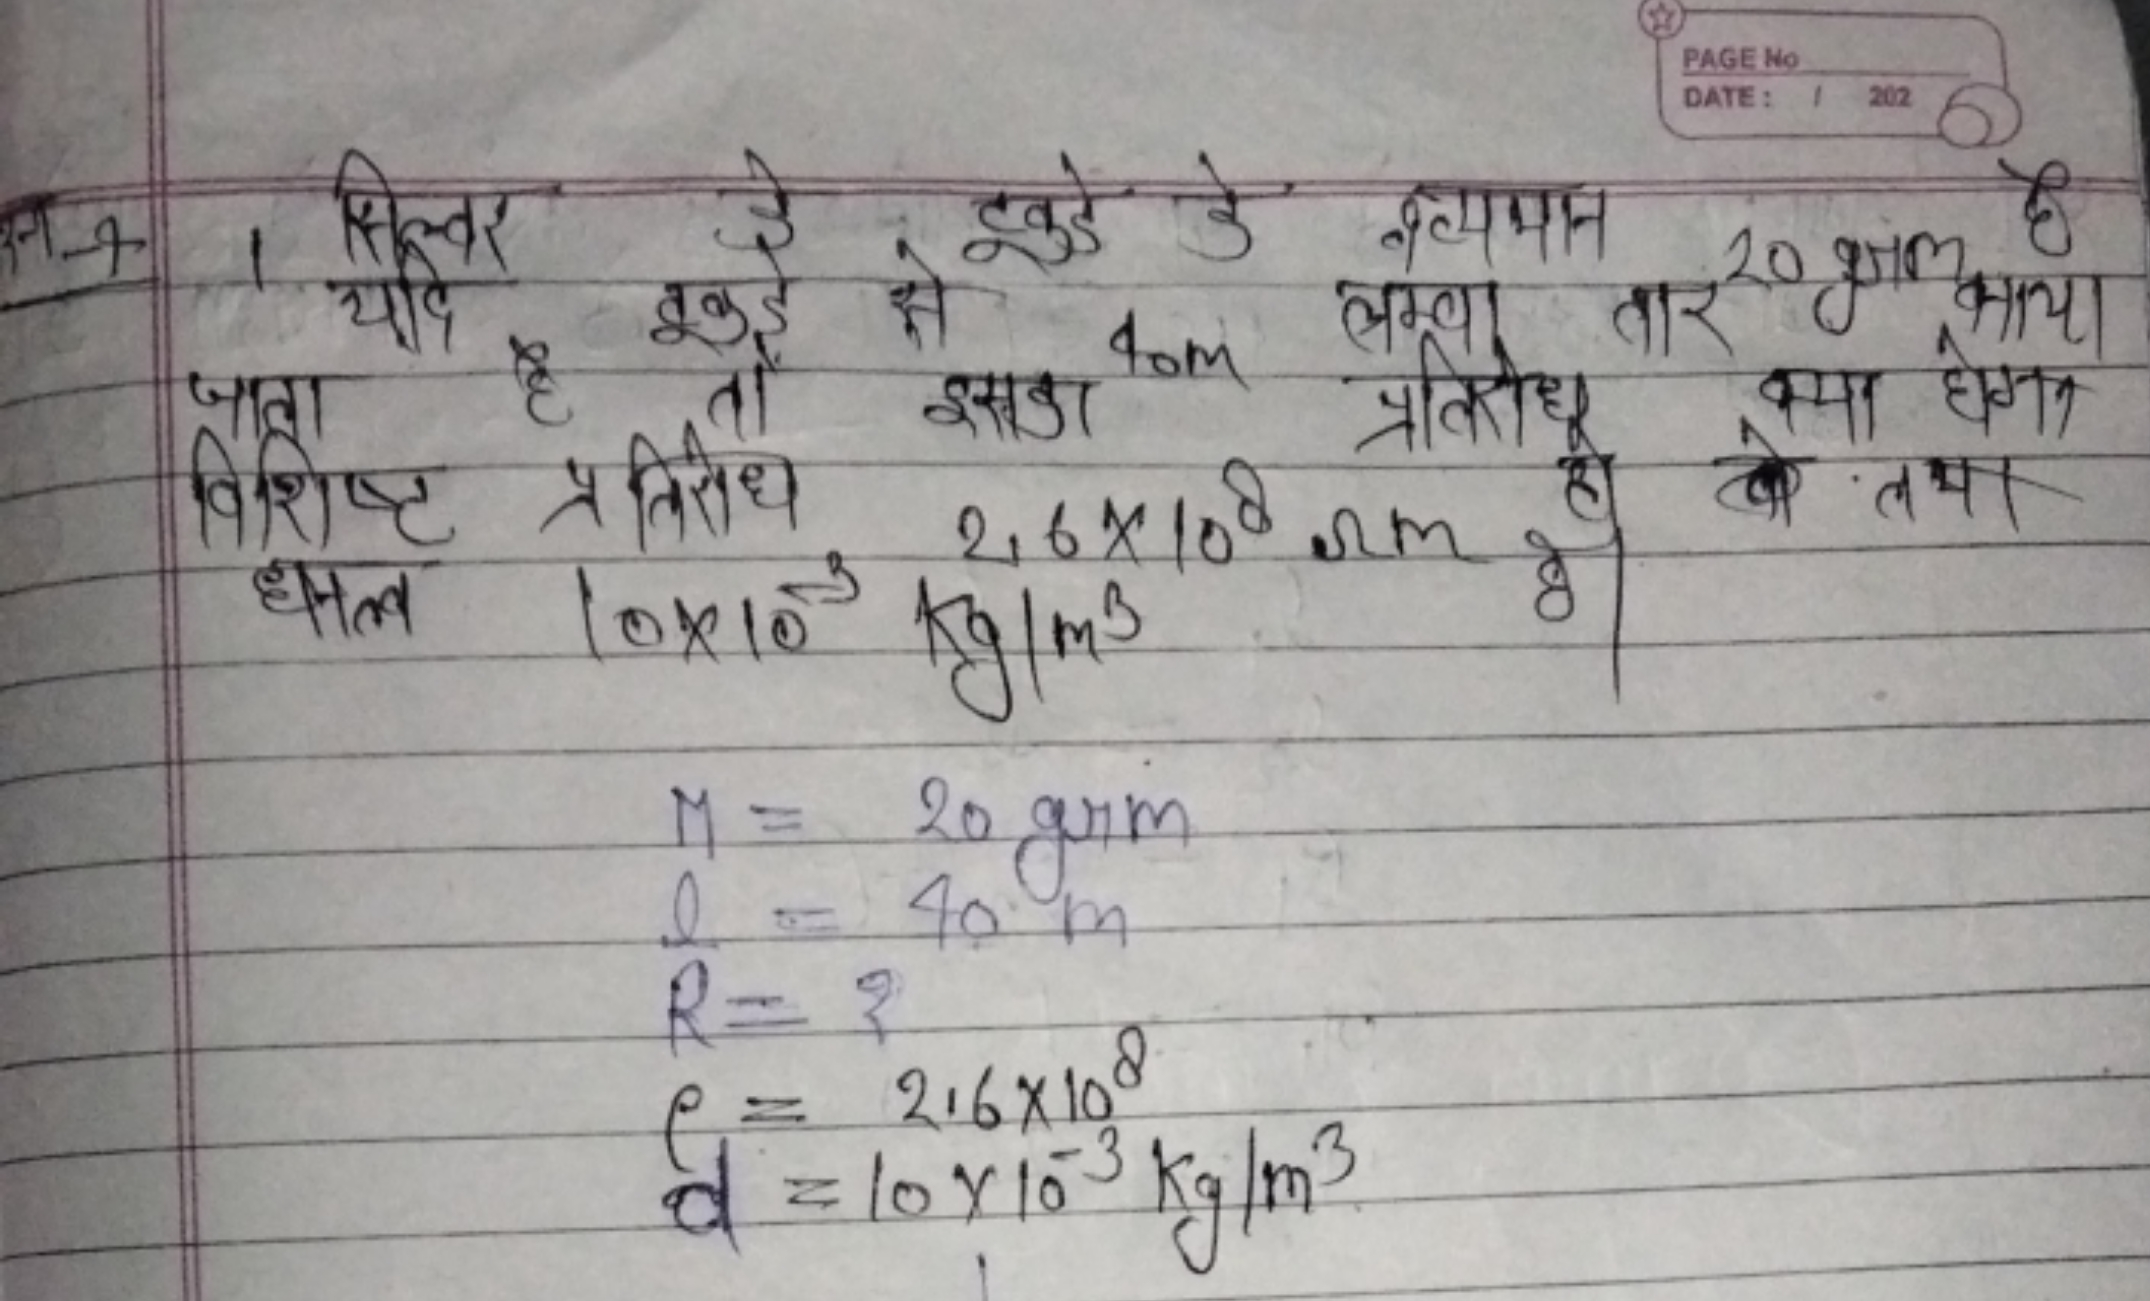 PAGE No
DATE: / 202
1 सिल्वर के टुकडे के द्रव्यमान 20 grm है
यदि टुकडे से 40m लम्बा तार बनाया
जाता है तो इसका प्रतिरोध क्या होगा
विशिष्ट प्रतिरोध 2.6×10⁸ Ωm हो तथा
घनत्व 10×10⁻³ Kg/m³ है।
M = 20 grm
l = 40 m
R = ?
ρ = 2.6×10⁸
d = 10×10⁻³ Kg/m³